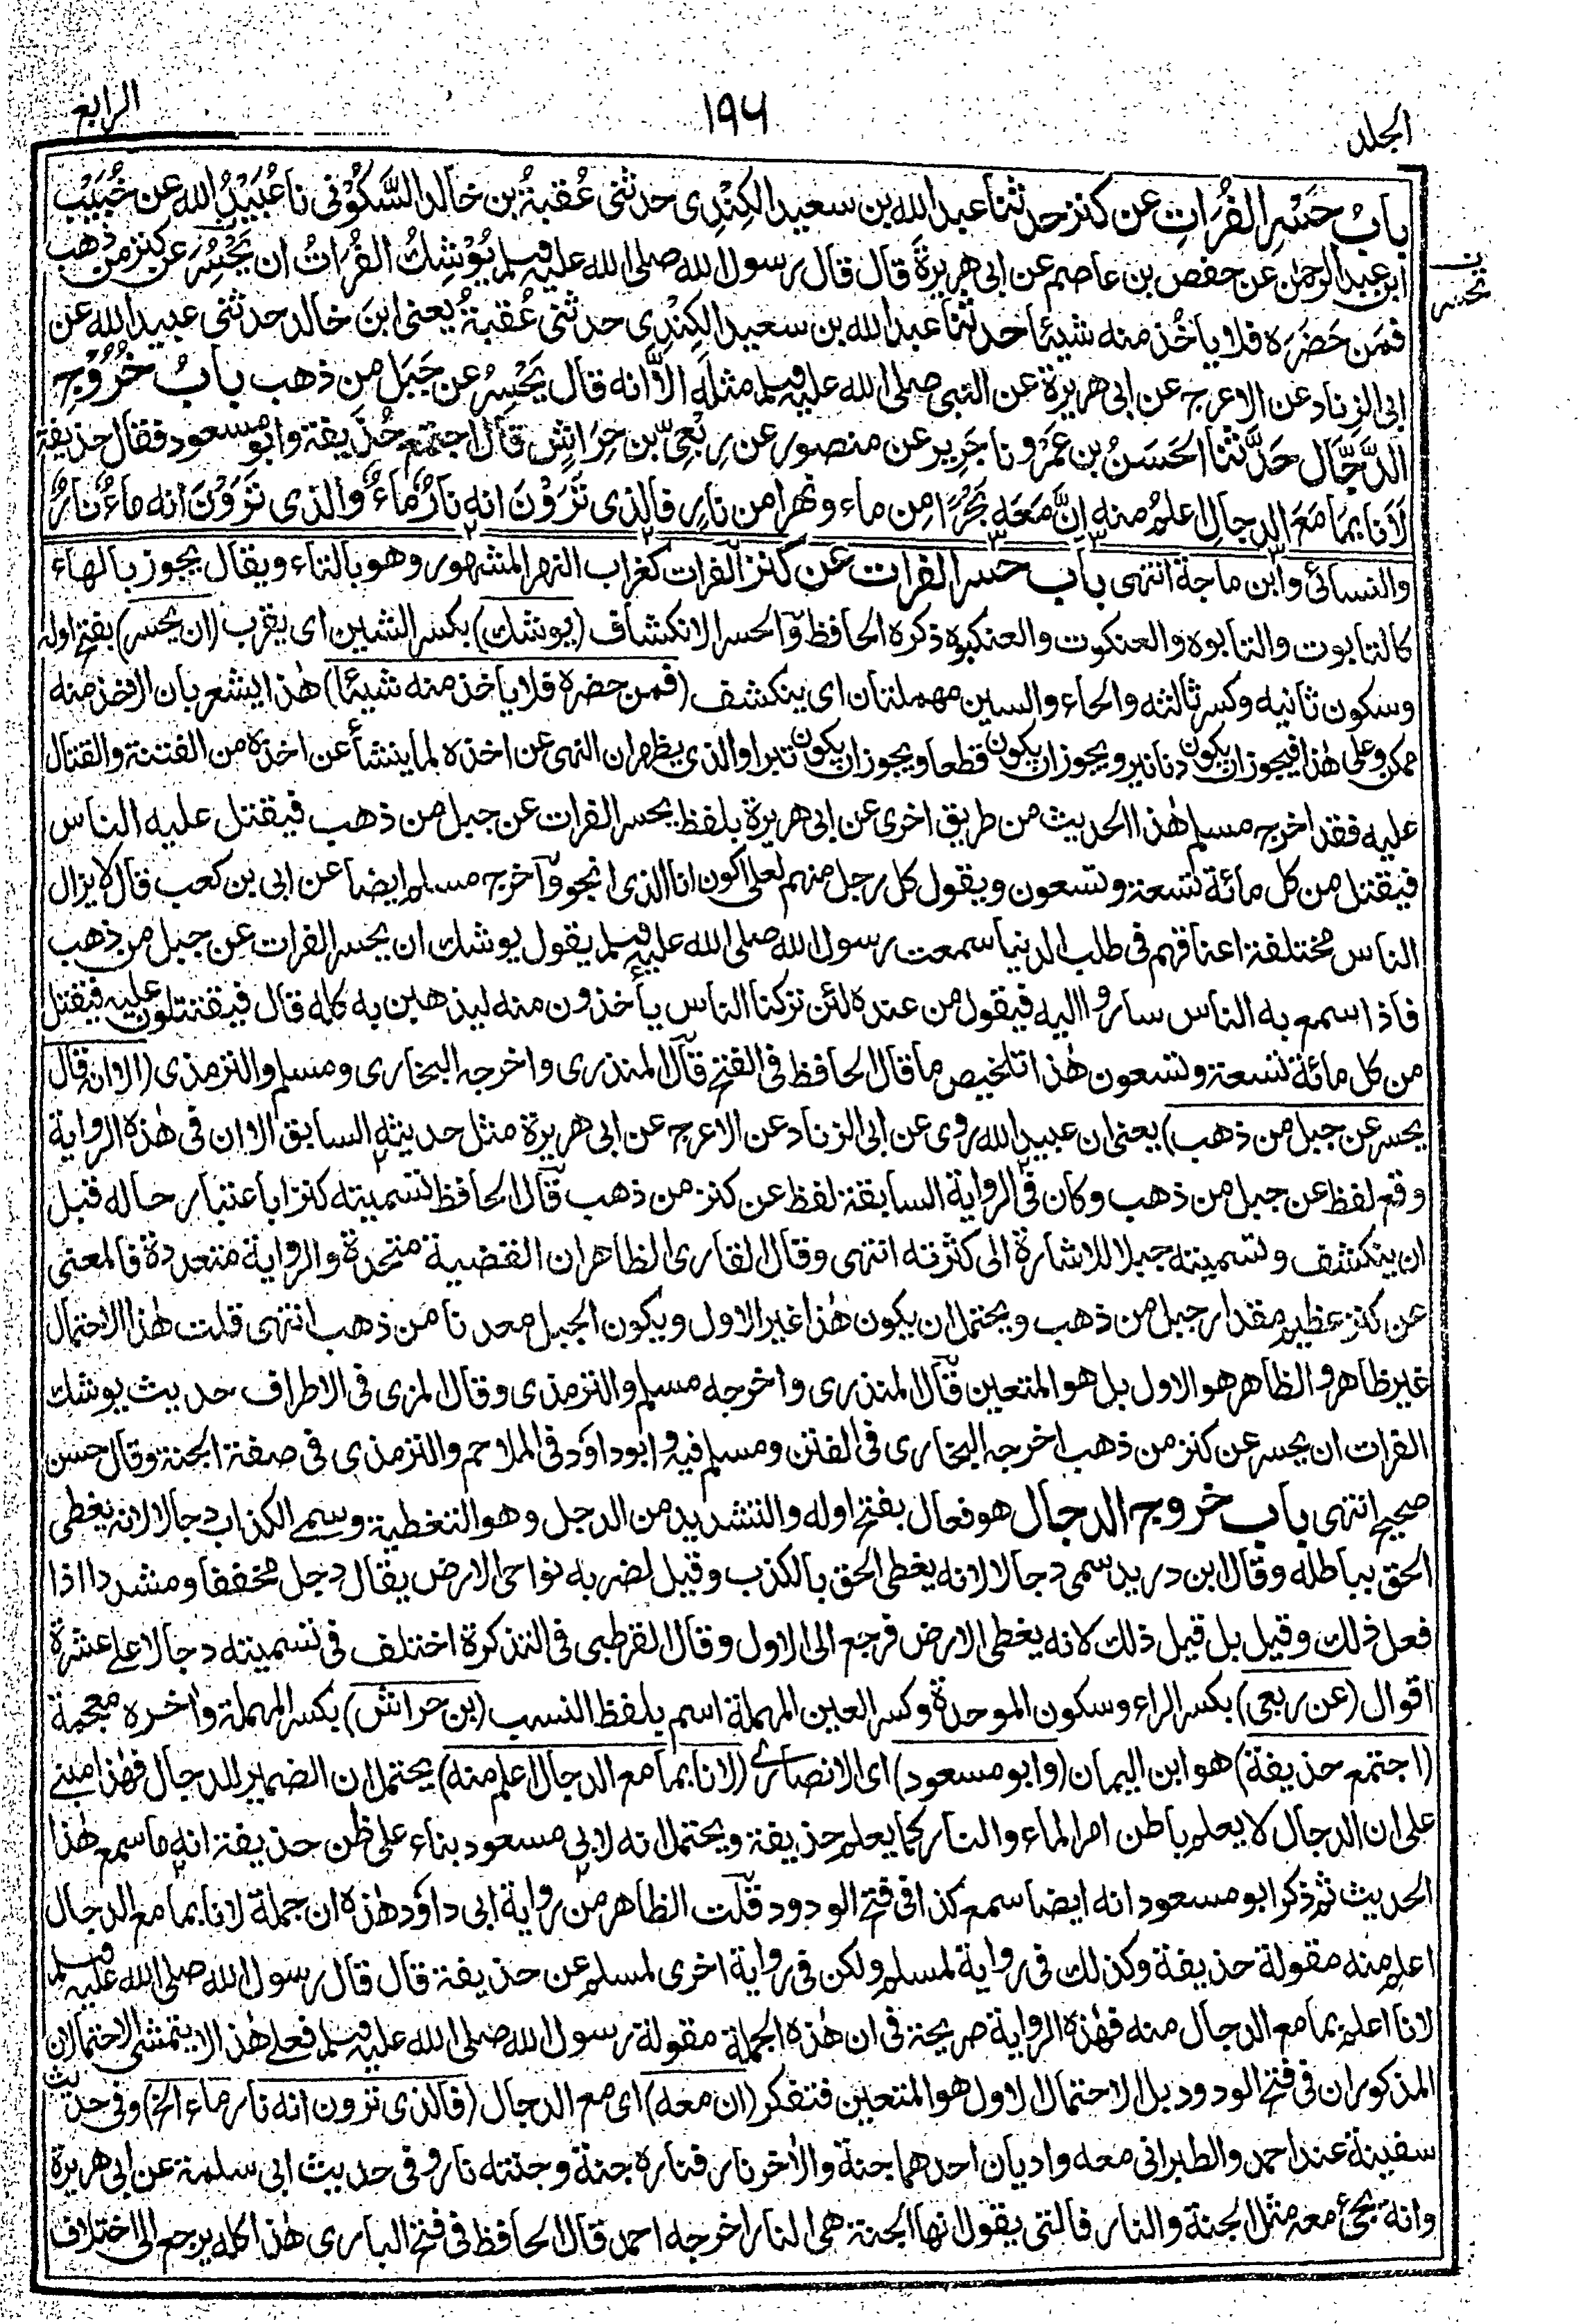 الرابع
۱۹۶
المجلد
بابُ حَسْرِ الفُرَاتِ عن كنز حدثنا عبد الله بن سعيد الكِنْدِى حدثنى عُقبةُ بن خالد السَّكُوْنى نا عُبَيْدُ الله عن خُبَيْب
ابن عبد الرحمٰن عن حفص بن عاصم عن ابى هريرةَ قال قال رسول الله صلى الله عليه وسلم يُوْشِكُ الفُرَاتُ ان يَحْسُِرَ عن كنز من ذهب
فمَن حَضَرَه فلا ياخُذ منه شيئا حدثنا عبد الله بن سعيد الكِنْدِى حدثنى عُقبةُ يعنى ابنَ خالد حدثنى عبيد الله عن
ابى الزناد عن الاعرج عن ابى هريرة عن النبى صلى الله عليه وسلم مثلَه الاَّ انه قال يَحْسِرُ عن جَبَل من ذهب بابُ خُرُوْجِ
الدَّجَّال حَدَّثنا الحَسَنُ بن عَمْرو نا جَرِير عن منصور عن رِبْعِىّ بن حِرَاشٍ قال اجتمع حُذَيفة وابو مسعود فقال حذيفة
لَاَنا بما مَعَ الدجالِ اعلمُ منه اِنَّ مَعَه بَحْرًا مِن ماء ونهرا من نارٍ فالذى تَرَوْنَ انه نارٌ ماءٌ والذى تَرَوْنَ انه ماءٌ نارٌ
ن
تحسر
والنسائى وابن ماجة انتهى باب حسر الفرات عن كنز الفرات كغراب النهر المشهور وهو بالتاء ويقال يجوز بالهاء
كالتابوت والتابوه والعنكبوت والعنكبوه ذكره الحافظ والحسر الانكشاف (يوشك) بكسر الشين اى يقرب (ان يحسر) بفتح اوله
وسكون ثانيه وكسر ثالثه والحاء والسين مهملتان اى ينكشف (فمن حضره فلا ياخذ منه شيئا) هٰذا يشعر بان الاخذ منه
ممكن وعلى هٰذا فيجوز ان يكون دنانير ويجوز ان يكون قطعا ويجوز ان يكون تبرا والذى يظهر ان النهى عن اخذه لما ينشأ عن اخذه من الفتنة والقتال
عليه فقد اخرج مسلم هٰذا الحديث من طريق اخرى عن ابى هريرة بلفظ يحسر الفرات عن جبل من ذهب فيقتل عليه الناس
فيقتل من كل مائة تسعة وتسعون ويقول كل رجل منهم لعلى اكون انا الذى انجو واخرج مسلم ايضا عن ابى بن كعب قال لا يزال
الناس مختلفة اعناقهم فى طلب الدنيا سمعت رسول الله صلى الله عليه وسلم يقول يوشك ان يحسر الفرات عن جبل من ذهب
فاذا سمع به الناس ساروا اليه فيقول من عنده لئن تركنا الناس يأخذون منه ليذهبن به كله قال فيقتتلون عليه فيقتل
من كل مائة تسعة وتسعون هٰذا تلخيص ما قال الحافظ فى الفتح قال المنذرى واخرجه البخارى ومسلم والترمذى (الا انه قال
يحسر عن جبل من ذهب) يعنى ان عبيد الله روى عن ابى الزناد عن الاعرج عن ابى هريرة مثل حديثه السابق الا ان فى هٰذه الرواية
وقع لفظ عن جبل من ذهب وكان فى الرواية السابقة لفظ عن كنز من ذهب قال الحافظ تسميته كنزا باعتبار حاله قبل
ان ينكشف وتسميته جبلا للاشارة الى كثرته انتهى وقال القارى الظاهر ان القضية متحدة والرواية متعددة فالمعنى
عن كنز عظيم مقدار جبل من ذهب ويحتمل ان يكون هٰذا غير الاول ويكون الجبل معدنا من ذهب انتهى قلت هٰذا الاحتمال
غير ظاهر والظاهر هو الاول بل هو المتعين قال المنذرى واخرجه مسلم والترمذى وقال المزى فى الاطراف حديث يوشك
الفرات ان يحسر عن كنز من ذهب اخرجه البخارى فى الفتن ومسلم فيه وابو داؤد فى الملاحم والترمذى فى صفة الجنة وقال حسن
صحيح انتهى باب خروج الدجال هو فعال بفتح اوله والتشديد من الدجل وهو التغطية وسمى الكذاب دجالا لانه يغطى
الحق بباطله وقال ابن دريد سمى دجالا لانه يغطى الحق بالكذب وقيل لضربه نواحى الارض يقال دجل مخففا ومشددا اذا
فعل ذلك وقيل بل قيل ذلك لانه يغطى الارض فرجع الى الاول وقال القرطبى فى التذكرة اختلف فى تسميته دجالا على عشرة
اقوال (عن ربعى) بكسر الراء وسكون الموحدة وكسر العين المهملة اسم بلفظ النسب (بن حراش) بكسر المهملة واٰخره معجمة
(اجتمع حذيفة) هو ابن اليمان (وابو مسعود) اى الانصارى (لانا بما مع الدجال اعلم منه) يحتمل ان الضمير للدجال فهٰذا مبنى
على ان الدجال لا يعلم باطن امر الماء والنار كما يعلم حذيفة ويحتمل انه لابى مسعود بناء على ظن حذيفة انه ما سمع هٰذا
الحديث ثم ذكر ابو مسعود انه ايضا سمع كذا فى فتح الودود قلت الظاهر من رواية ابى داؤد هٰذه ان جملة لانا بما مع الدجال
اعلم منه مقولة حذيفة وكذلك فى رواية لمسلم ولكن فى رواية اخرى لمسلم عن حذيفة قال قال رسول الله صلى الله عليه وسلم
لانا اعلم بما مع الدجال منه فهٰذه الرواية صريحة فى ان هٰذه الجملة مقولة رسول الله صلى الله عليه وسلم فعلى هٰذا لا يتمشى الاحتمالان
المذكوران فى فتح الودود بل الاحتمال الاول هو المتعين فتفكر (ان معه) اى مع الدجال (فالذى ترون انه نار ماء الخ) وفى حديث
سفينة عند احمد والطبرانى معه واديان احدهما جنة والاٰخر نار فناره جنة وجنته نار وفى حديث ابى سلمة عن ابى هريرة
وانه يجئ معه مثل الجنة والنار فالتى يقول انها الجنة هى النار اخرجه احمد قال الحافظ فى فتح البارى هٰذا كله يرجع الى اختلاف